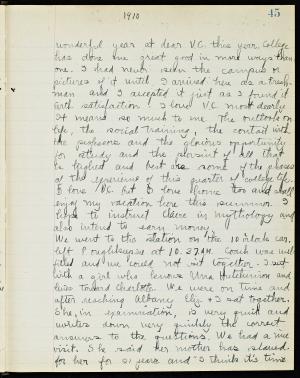 1910
45
wonderful year at dear V.C. this year. College
has done me great good in more ways than
one. I had never seen the campus or
pictures of it until I arrived here as a fresh-
man and I accepted it just as I found it
with satisfaction. I love V.C. most dearly
It means so much to me. The outlook on
life, the social training, the contact with
the professors and the glorious opportunity
for study and the pursuit of all that
is highest and best are some of the phases
of the experience of this quarter of college life.
I love V.C. but I love home too and shall
enjoy my vacation here this summer. I
hope to instruct Claire in mythology and
also intend to earn money.
We went to the station on the 10 o'clock car.
left Poughkeepsie at 10.37 AM. Coach was well
filled and we could not sit together. I sat
with a girl who knows Una Hutchinson and
lives toward Charlotte. We were on time and
after reaching Albany Eliz. & I sat together.
She, in examination, is very quiet and
writes down very quietly the correct
answers to the questions. We had a nice
visit. She said her mother has slaved
for her for 21 years and "I think it's time